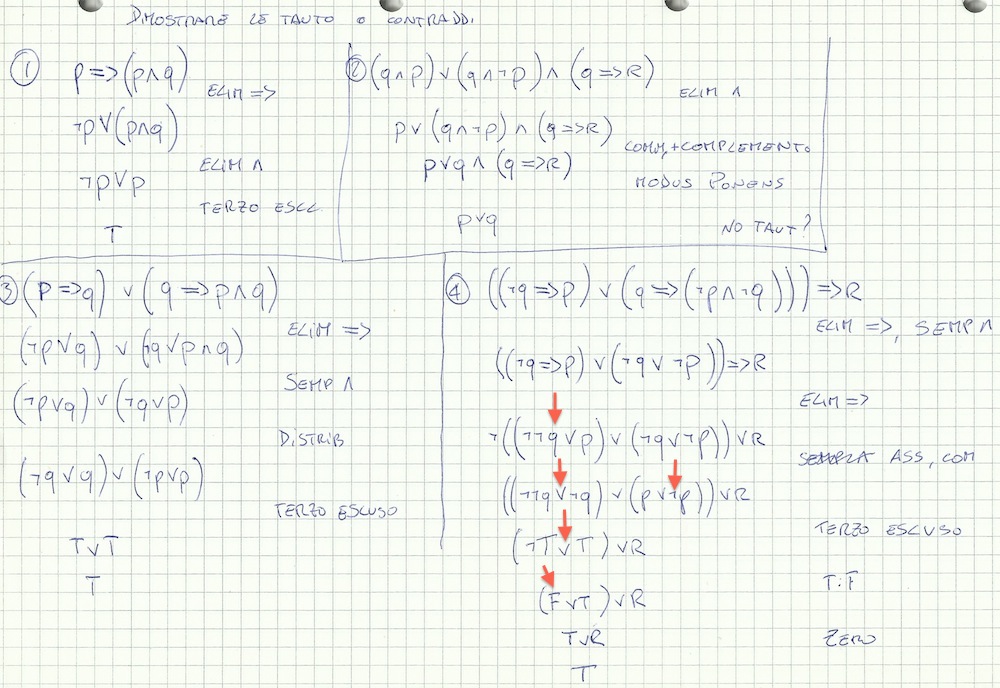 DIMOSTRARE LE TAUTO O CONTRADDI
① p => (p∧q)
ELIM =>
¬p∨(p∧q)
ELIM ∧
¬p∨p
TERZO ESCL.
T
② (q∧p)∨(q∧¬p)∧(q=>R)
ELIM ∧
p∨(q∧¬p)∧(q=>R)
COMM,+COMPLEMENTO
p∨q∧(q=>R)
MODUS PONENS
p∨q
NO TAUT?
③ (p=>q) ∨ (q=>p∧q)
ELIM =>
(¬p∨q) ∨ (¬q∨p∧q)
SEMP ∧
(¬p∨q)∨(¬q∨p)
DISTRIB
(¬q∨q)∨(¬p∨p)
TERZO ESCLUSO
T∨T
T
④ ((¬q=>p)∨(q=>(¬p∧¬q)))=>R
ELIM =>, SEMP ∧
((¬q=>p)∨(¬q∨¬p))=>R
ELIM =>
¬((¬¬q∨p)∨(¬q∨¬p))∨R
ASS, COM
((¬¬q∨¬q)∨(p∨¬p))∨R
TERZO ESCLUSO
(¬T∨T)∨R
T:F
(F∨T)∨R
T∨R
ZERO
T